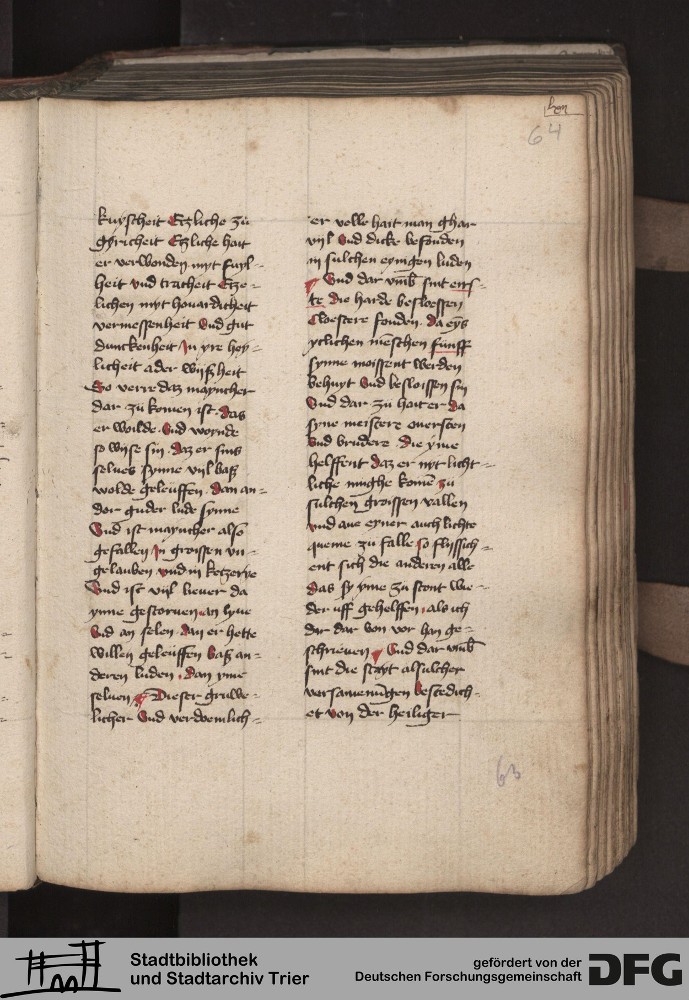 64
kuyscheit Etzliche zů
gyricheit Etzliche hait
er verwonden myt fuyl=
heit vnd tracheit Etze=
lichen myt houardicheit
vermessenheit Vnd gut
dunckenheit In yre hey=
licheit ader wijßheit
So verre daz mayncher
dar zů komen ist das
er woilde Vnd worude
so wijse sin daz er sins
selues synne vijl baß
wolde geleuffen dan an=
der guder lude synne
Vnd ist mayncher also
gefallen In groissen vn=
gelauben vnd in ketzerye
Vnd ist vijl lieuer da
ynne gestoruen an lyue
Vnd an selen dan er hette
willen geleuffen baß an=
deren luden dan yme
seluen Dieser gruwe=
licher Vnd verdoemlich=
er velle hait man ghar
vijl Vnd dicke befonden
in sulchen eynigen luden
Vnd dar vmb sint ers=
te die harde besloessen
Cloestere fonden da eyn
yclichen menschen fünff
synne moissent werden
behuyt Vnd besloissen sin
Vnd dar zů hait er da
syne meistere ouersten
Vnd brudere die yme
helffent daz er nyt licht=
liche mughe komen zu
sulchen groissen vallen
vnd aue eyner auch lichte
queme zu falle so flijssich=
ent sich die anderen alle
das sy yme zu stont wie=
der uff gehelffen als ich
dir dar von vor han ge=
schrieuen Vnd dar vmb
sint die stayt alsulcher
versamenungen bestedich=
et von der heiliger
63
Stadtbibliothek
und Stadtarchiv Trier
gefördert von der
Deutschen Forschungsgemeinschaft
DFG